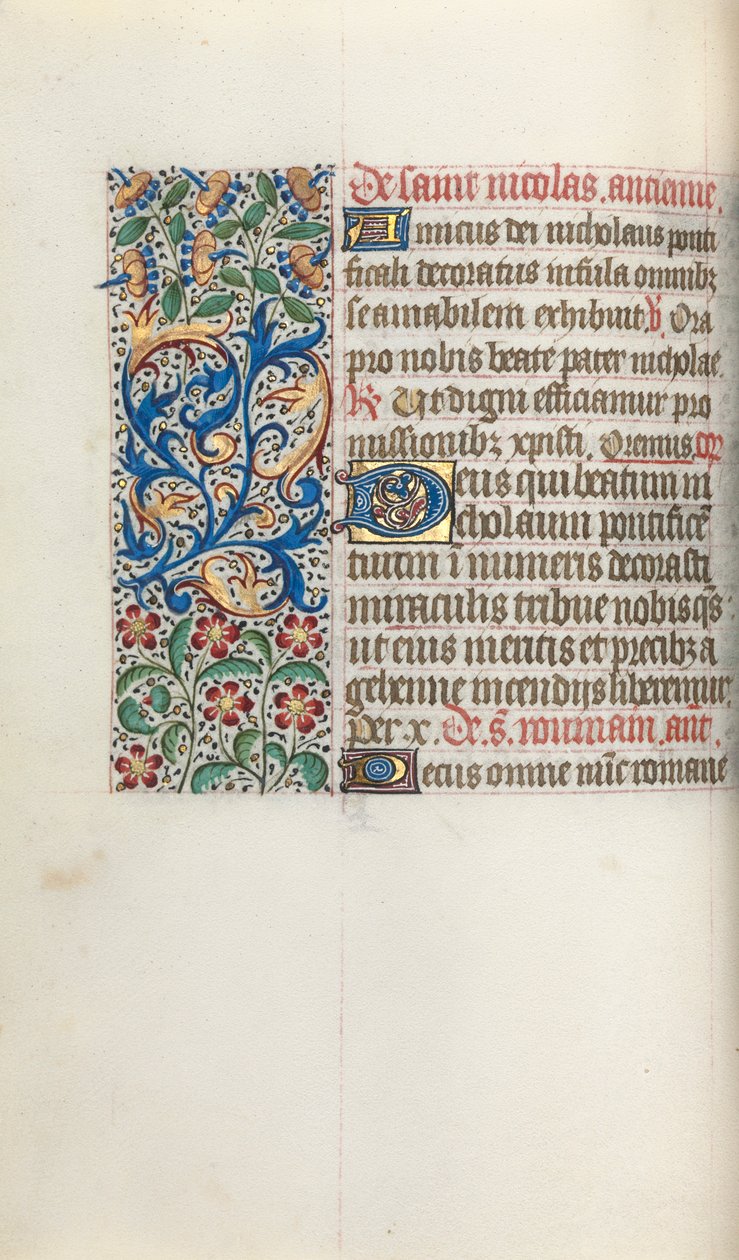 De saint nicolas. antienne.
Amicus dei nicholaus ponti
ficali decoratus infula omnibꝫ
se amabilem exhibuit. V̄. Ora
pro nobis beate pater nicholae.
R̄ Ut digni efficiamur pro
missionibꝫ xp̄isti. Oremus or̄
Deus qui beatum ni
cholaum pontificē
tuum īnumeris decorasti
miraculis tribue nobis q̄s
ut eius meritis et precibꝫ a
gehenne incendijs liberemur.
per. x. De. s̄. roumain. an̄t.
Decus omne nūc romane